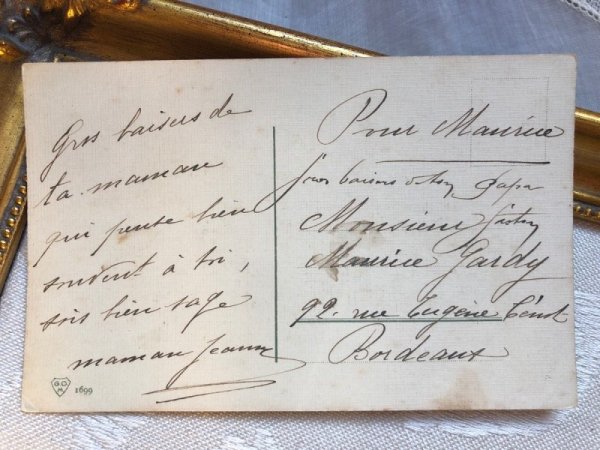 Gros baisers de
ta maman
qui pense bien
souvent à toi,
sois bien sage
maman Jeanne
G.G.
1699
Pour Maurice
baisers de ton papa
Monsieur
Maurice Gardy
92 rue Eugène Ténot
Bordeaux